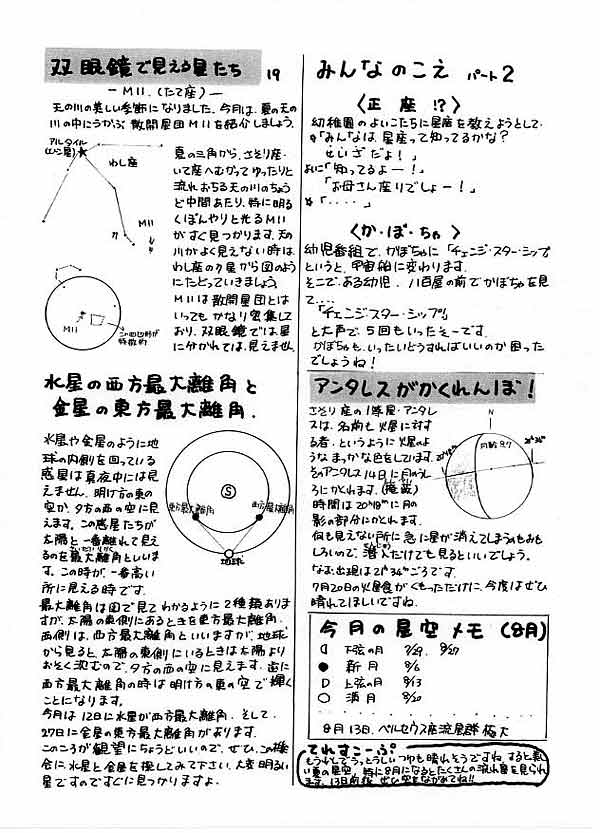 双眼鏡で見える星たち 19
ーM11.(たて座)ー
天の川の美しい季節になりました。今月は、夏の天の
川の中にうかぶ散開星団M11を紹介しましょう。
アルタイル
わし座
M11
M11
この四辺形が
特徴的
夏の三角から、さそり座・
いて座へむかってゆったりと
流れおちる天の川のちょう
ど中間あたり、特に明る
くぼんやりと光るM11
がすぐ見つかります。天の
川がよく見えない時は、
わし座のη星から図のよう
にたどっていきましょう。
M11は散開星団とは
いってもかなり密集して
おり、双眼鏡では、星
に分かれては、見えません。
水星の西方最大離角と
金星の東方最大離角.
水星や金星のように地
球の内側を回っている
惑星は真夜中には見
えません。明け方の東の
空か、夕方の西の空に見
えます。この惑星たちが
太陽と一番離れて見え
るのを最大離角といいま
さいだいりかく
す。この時が、一番高い
所に見える時です。
東方最大離角
西方最大離角
S
地球
最大離角は図で見てわかるように2種類ありま
すが、太陽の東側にあるときを東方最大離角.
西側は、西方最大離角といいますが、地球か
ら見ると、太陽の東側にいるときは太陽より
おそく沈むので、夕方の西の空に見えます。逆に
西方最大離角の時は明け方の東の空で輝く
ことになります。
今月は12日に水星が西方最大離角.そして、
27日に金星の東方最大離角があります。
このころが観望にちょうどいいので、ぜひ、この機
会に、水星と金星を探してみて下さい。大変明るい
星ですのですぐに見つかりますよ。
みんなのこえ パート2
〈正座!?〉
幼稚園のよいこたちに星座を教えようとして・
「みんなは、星座って知ってるかな?
せいざだよ!」
よいこ「知ってるよー!」
「お母さん座りでしょー!」
「・・・・」
〈か・ぼ・ちゃ〉
幼児番組で、かぼちゃに「チェンジ・スター・シップ」
というと、宇宙船に変わります。
そこで、ある幼児、八百屋の前でかぼちゃを見
て‥‥
「チェンジ・スター・シップ」
と大声で、5回もいったそーです。
かぼちゃも、いったいどうすればいいのか困った
でしょうね!
アンタレスがかくれんぼ!
さそり座の1等星・アンタレ
スは、名前も火星に対す
る者、というように火星のよ
うなまっかな色をしています。
そのアンタレス14日に月のうし
ろにかくれます。(掩蔽)
時間は20h18mに月の
影の部分にかくれます。
N
20h18m
月齢8.7
21h36m
何も見えない所に急に星が消えてしまうのもおも
しろいので、潜入だけでも見るといいでしょう。
なお、出現は21h36mごろです。
7月20日の火星食がくもっただけに、今度はぜひ
晴れてほしいですね。
今月の星空メモ(8月)
下弦の月 7/29. 8/27
新月 8/6
上弦の月 8/13
満月 8/20
8月13日.ペルセウス座流星群極大
てれすこーぷ
もう少しでうっとうしいつゆも晴れそうですね。すると美し
い夏の星空。特に8月になるとたくさんの流れ星を見られ
ます。13日前後、ぜひ空をながめてね!!